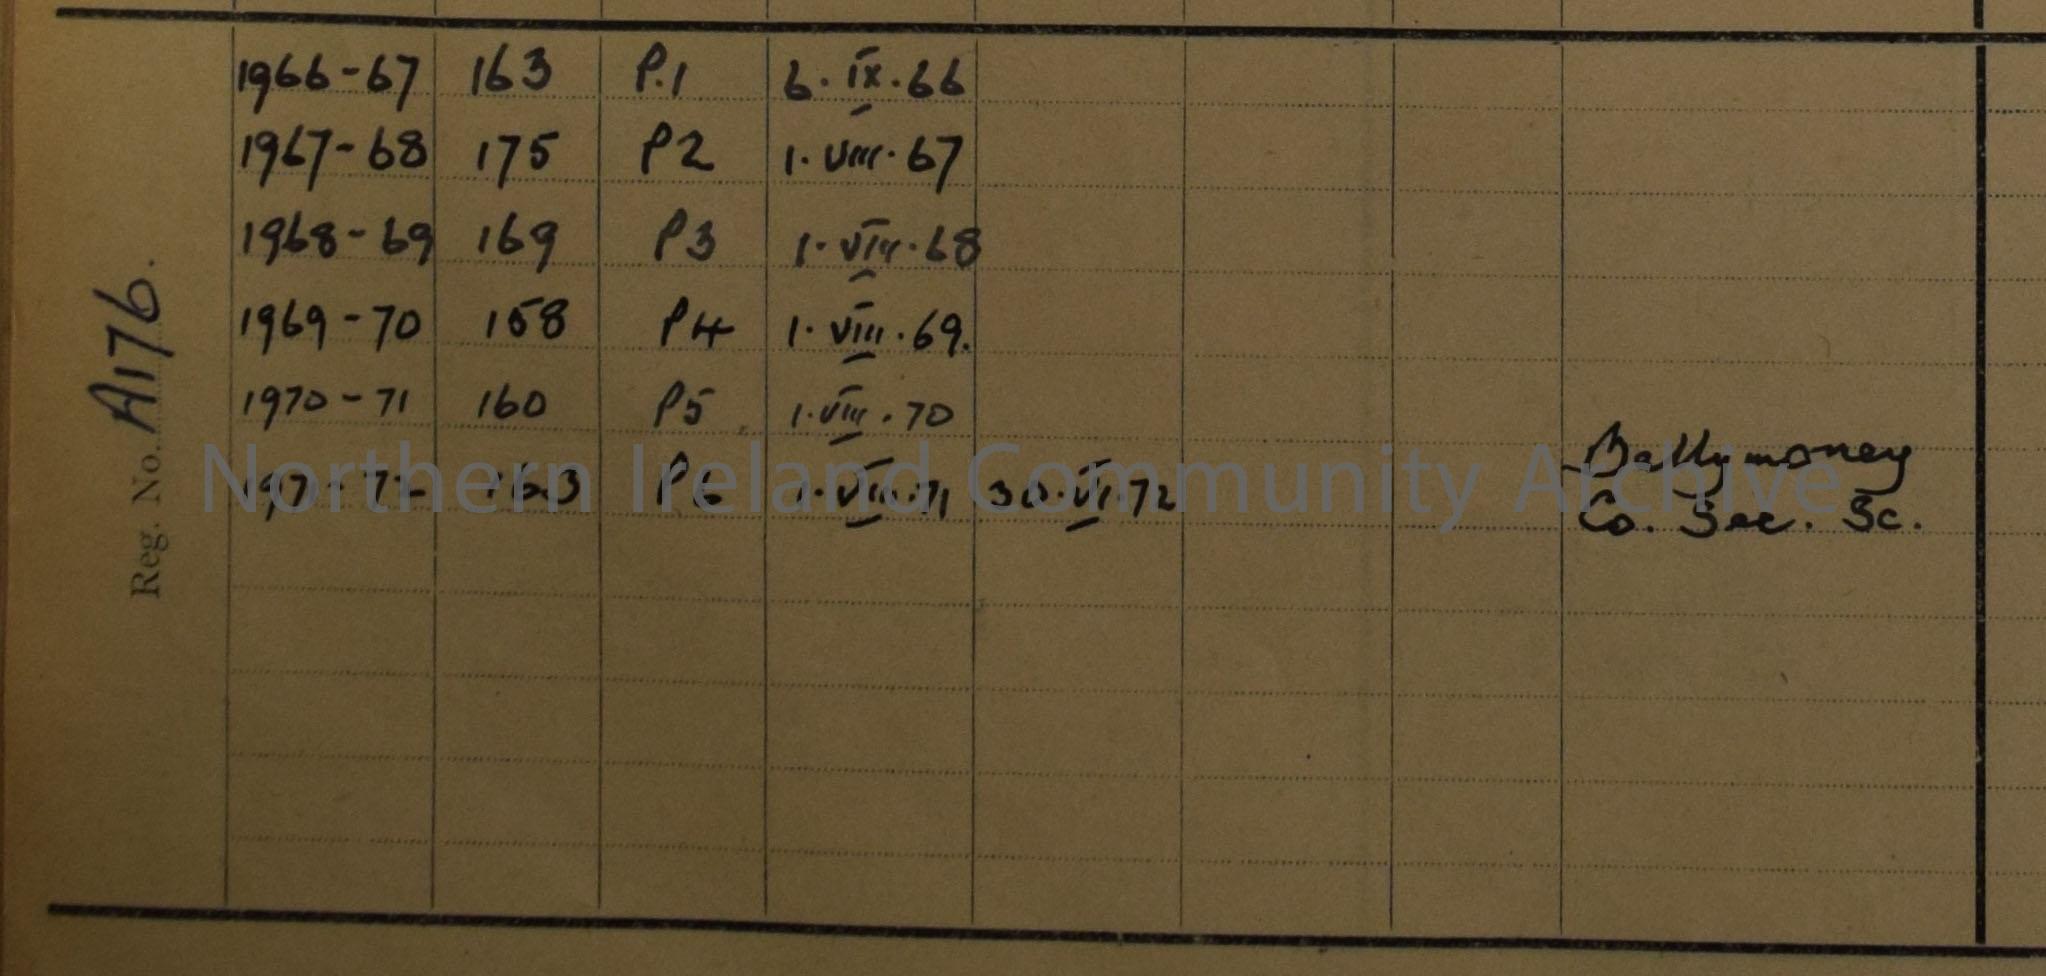 Reg. No. A176.
1966-67 163 P.1 6.IX.66
1967-68 175 P2 1.VIII.67
1968-69 169 P3 1.VIII.68
1969-70 158 P4 1.VIII.69.
1970-71 160 P5 1.VIII.70
1971-72 163 P6 1.VIII.71 30.VI.72 Ballymoney
Co. Sec. Sc.
Northern Ireland Community Archive